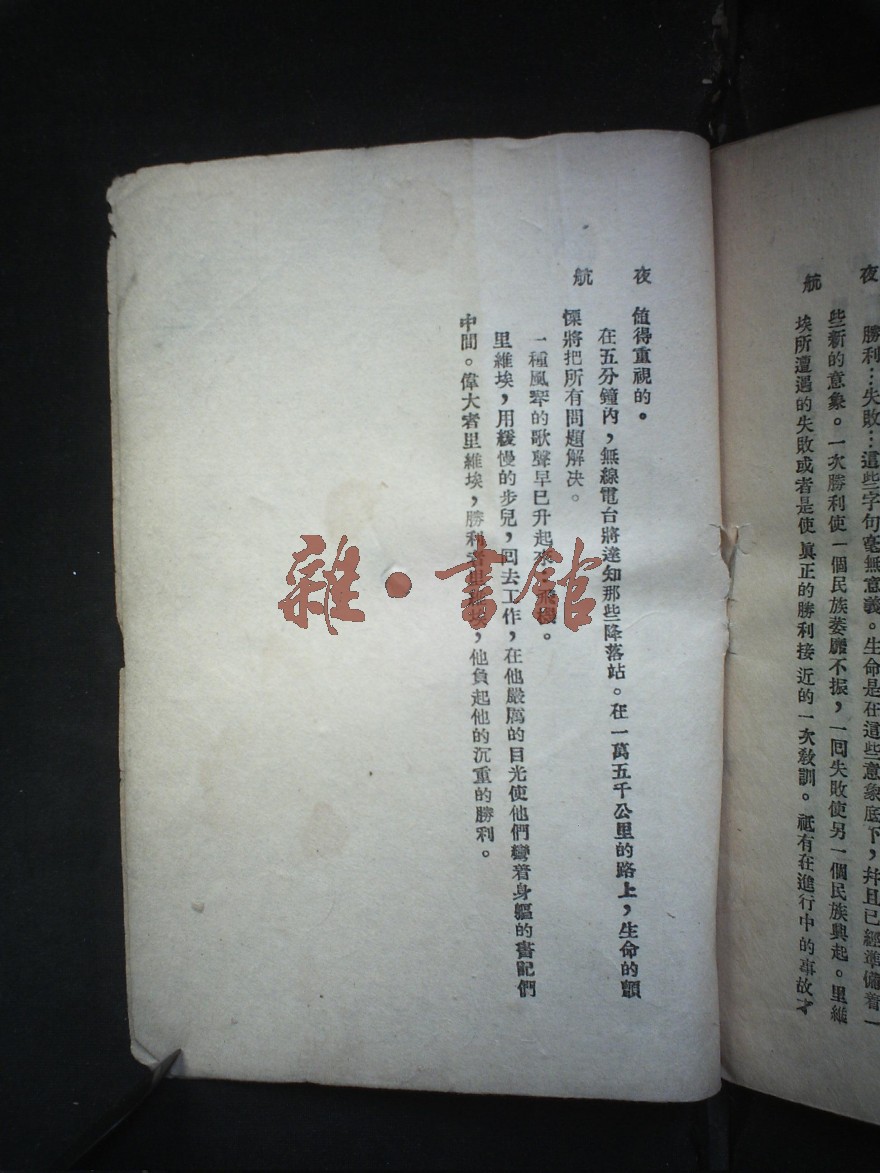 夜航
勝利…失敗…這些字句毫無意義。生命是在這些意象底下，幷且已經準備着一
些新的意象。一次勝利使一個民族萎靡不振，一回失敗使另一個民族興起。里維
埃所遭遇的失敗或者是使眞正的勝利接近的一次敎訓。祗有在進行中的事故才
夜航
値得重視的。
在五分鐘內，無線電台將達知那些降落站。在一萬五千公里的路上，生命的顫
慄將把所有問題解決。
一種風琴的歌聲早已升起來：飛機。
里維埃，用緩慢的步兒，回去工作，在他嚴厲的目光使他們彎着身軀的書記們
中間。偉大者里維埃，勝利者里維埃，他負起他的沉重的勝利。
雜·書館